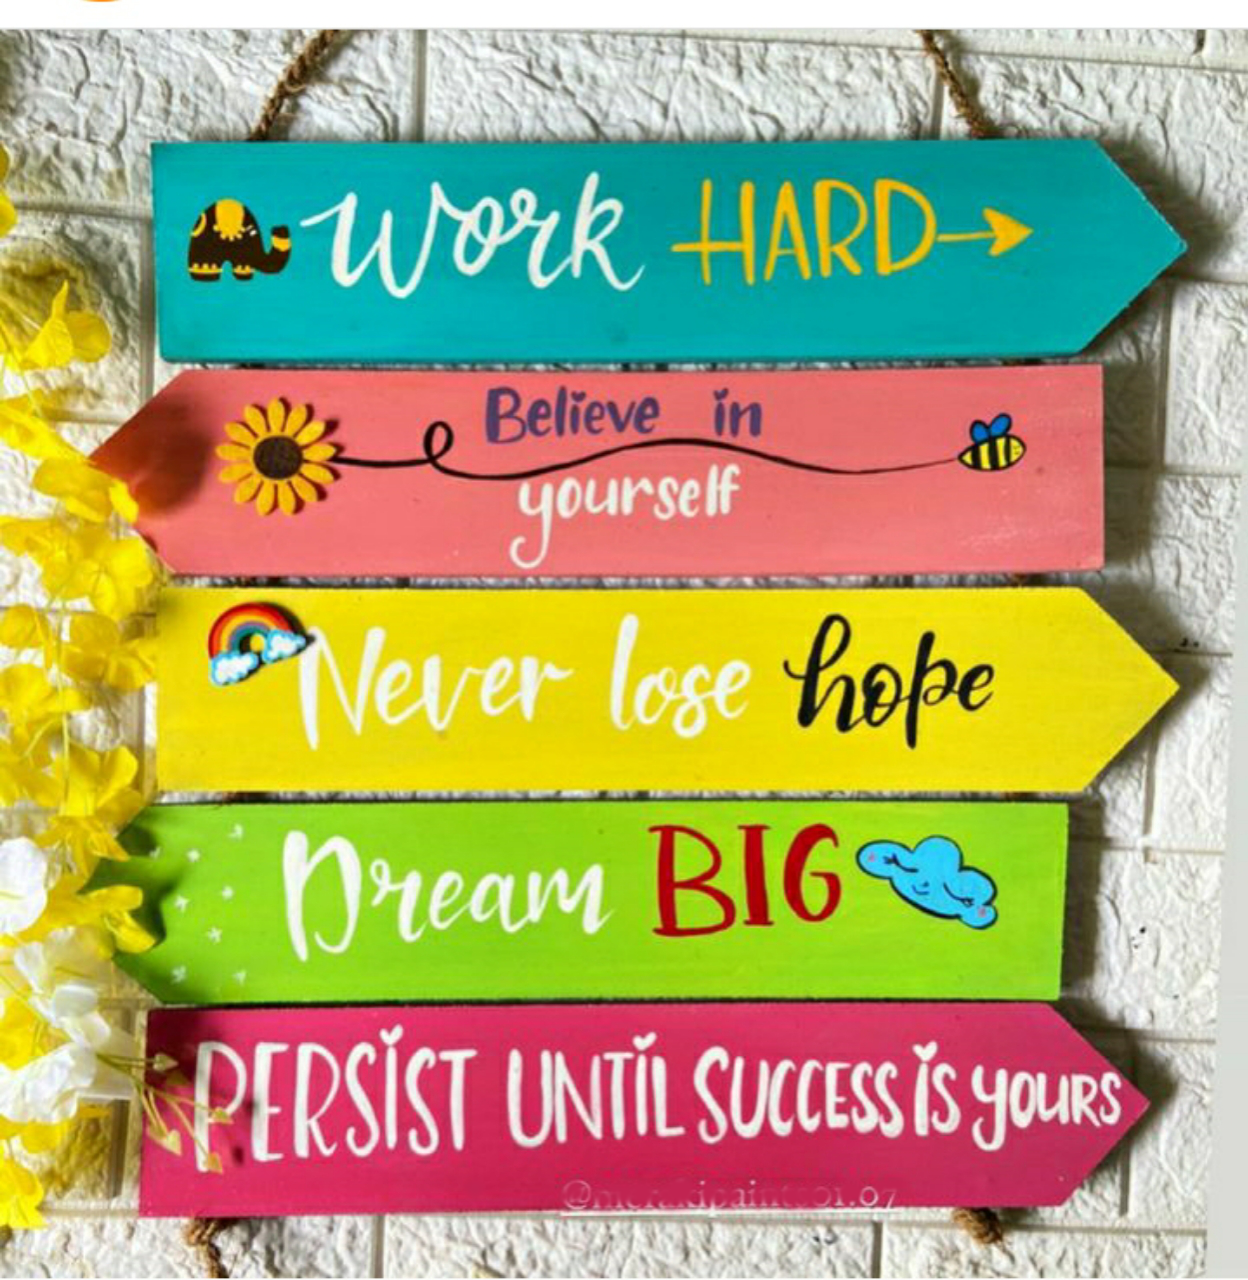 Work HARD
Believe in
yourself
Never lose hope
Dream BIG
PERSIST UNTIL SUCCESS IS YOURS